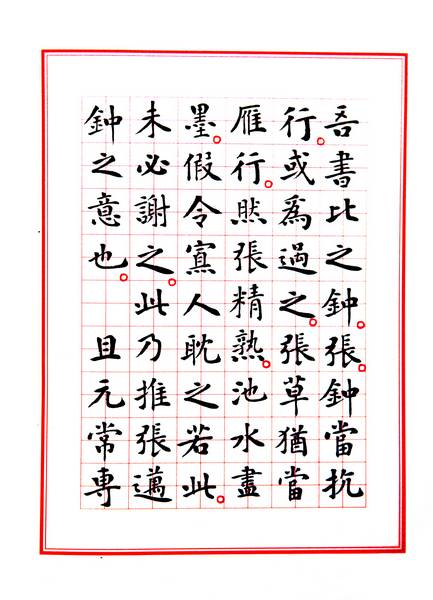 吾書比之鍾。張。鍾當抗
行。或爲過之。張草猶當
雁行。然張精熟。池水盡
墨。假令寡人耽之若此。
未必謝之。此乃推張邁
鍾之意也。 且元常專